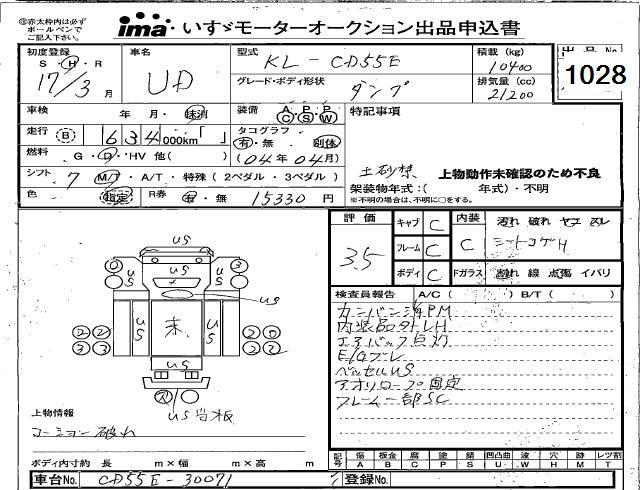 ※赤太枠内は必ずボールペンでご記入下さい。
ima いすゞモーターオークション出品申込書
初度登録 S・H・R 17/3月
車名 UD
型式 KL-CD55E
積載(kg) 10400
出品No. 1028
グレード・ボディ形状 ダンプ
排気量(cc) 21200
車検 年 月・抹消
装備 AC PS PW
特記事項
走行 B 634 000km「 」
タコグラフ 有・無 別体
燃料 G・D・HV 他( )
(04年04月)
土砂禁 上物動作未確認のため不良
シフト 7 MT・A/T・特殊(2ペダル・3ペダル)
架装物年式:( 年式)・不明
※不明の場合は、不明に○をする。
色 指定 R券 有・無 15330円
評価 3.5
キャブ C
フレーム C
ボディ C
内装 C
汚れ 破れ ヤニ スレ
シートコゲH
Fガラス 割れ 線 点傷 イバリ
検査員報告 A/C( ) B/T( )
カンバン消PM
内装品外レH
エアバック点灯
E/Gブレ
ベッセルUS
アオリロープ固定
フレーム一部SC
US
US
US
US
US
US
US
末
3
2 2
3 3
US
US当板
上物情報
コーション破れ
ボディ内寸約 長 m×幅 m×高 m
記号 傷A 板金B 腐C 塗P 錆S 凹凸曲U 波W 穴H 跡M レツ割T
車台No. CD55E-30071
登録No.